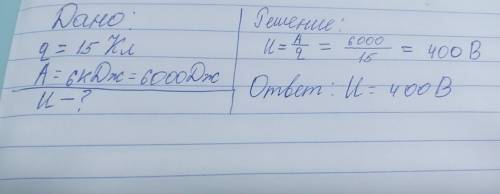 Дано:
q = 15 Кл
A = 6кДж = 6000Дж
U - ?
Решение:
U = A/q = 6000/15 = 400 В
Ответ: U = 400В